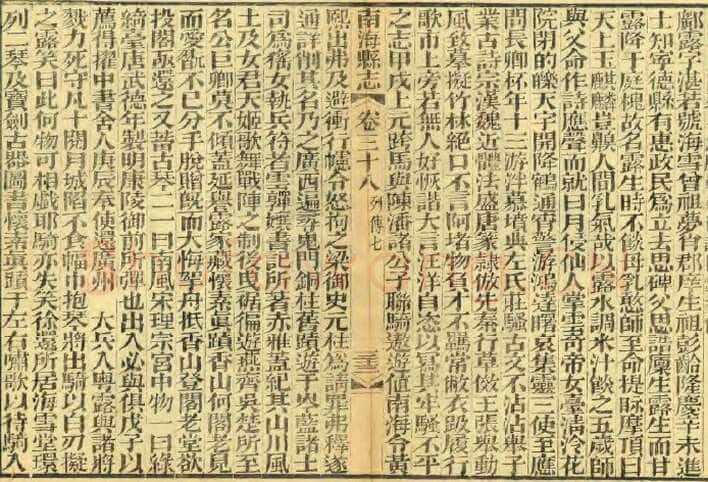 鄺露字湛若號海雪曾祖夢台郡庠生祖彭齡隆慶辛未進
士知寧德縣有惠政民為立去思碑父思誥廩生露生而甘
露降十庭槐故名露生時不飲母乳憨師至命提眎摩頂曰
天上玉麒麟豈穢人間乳氣哉以露水調米汁飲之五歲師
與父命作詩應聲而就曰月侵仙人掌
院閉的皪天宇開降鶴通宵警游鴻達曙哀集靈三使至應
問長卿杯年十三游泮墓墳典左氏莊騷古文不沾沾舉子
業古詩宗漢魏近體法盛唐篆隷倣先秦行草倣王張舉動
風致摹擬竹林絕口不言阿堵物負才不羈常敝衣趿履行
歌市上旁若無人好恢諧大言汪洋自恣以寫其牢騷不平
之志甲戌上元跨馬與陳潘諸公子聯騎遨遊值南海令黃
南海縣志 卷三十八 列傳七
熙出弗及避衝行幰令怒拘之梁御史元柱為請罪弗釋遂
通詳削其名乃之廣西遍尋鬼門銅柱舊蹟遊于岑藍諸土
司為猺女執兵符者雲嚲孃書記所著赤雅蓋紀其山川風
土及女君天姬歌舞戰陣之制後曳裾徧遊燕齊吳楚所至
名公巨卿莫不傾蓋延與露家藏懷素眞蹟香山何閣老見
而愛翫不已分手脫贈旣而大悔挐舟抵香山登閣老堂欲
投閣亟還之又蓄古琴二一曰南風宋理宗宮中物一曰綠
綺臺唐武德年製明康陵御前所彈也出入必與俱戊子以
薦得擢中書舍人庚辰奉使還廣州 大兵入粵露與諸將
戮力死守凡十閱月城陷不食幅巾抱琴將出騎以白刃擬
之露笑曰此何物可相戲耶騎亦失笑徐還所居海雪堂環
列二琴及寶劍古器圖書懷素眞蹟于左右嘯歌以待騎入